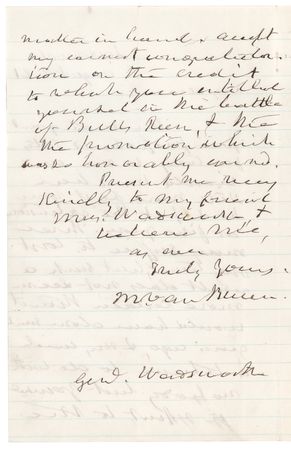 matter in hand & accept
my earnest congratula-
tion on the credit
to which you entitled
yourself in the battle
of Bulls Run, & the
the promotion which
was so honorably earned.
Present me very
kindly to my friend
Mrs. Wadsworth &
believe me,
as ever
Truly Yours.
M Van Buren.
Genl. Wadsworth